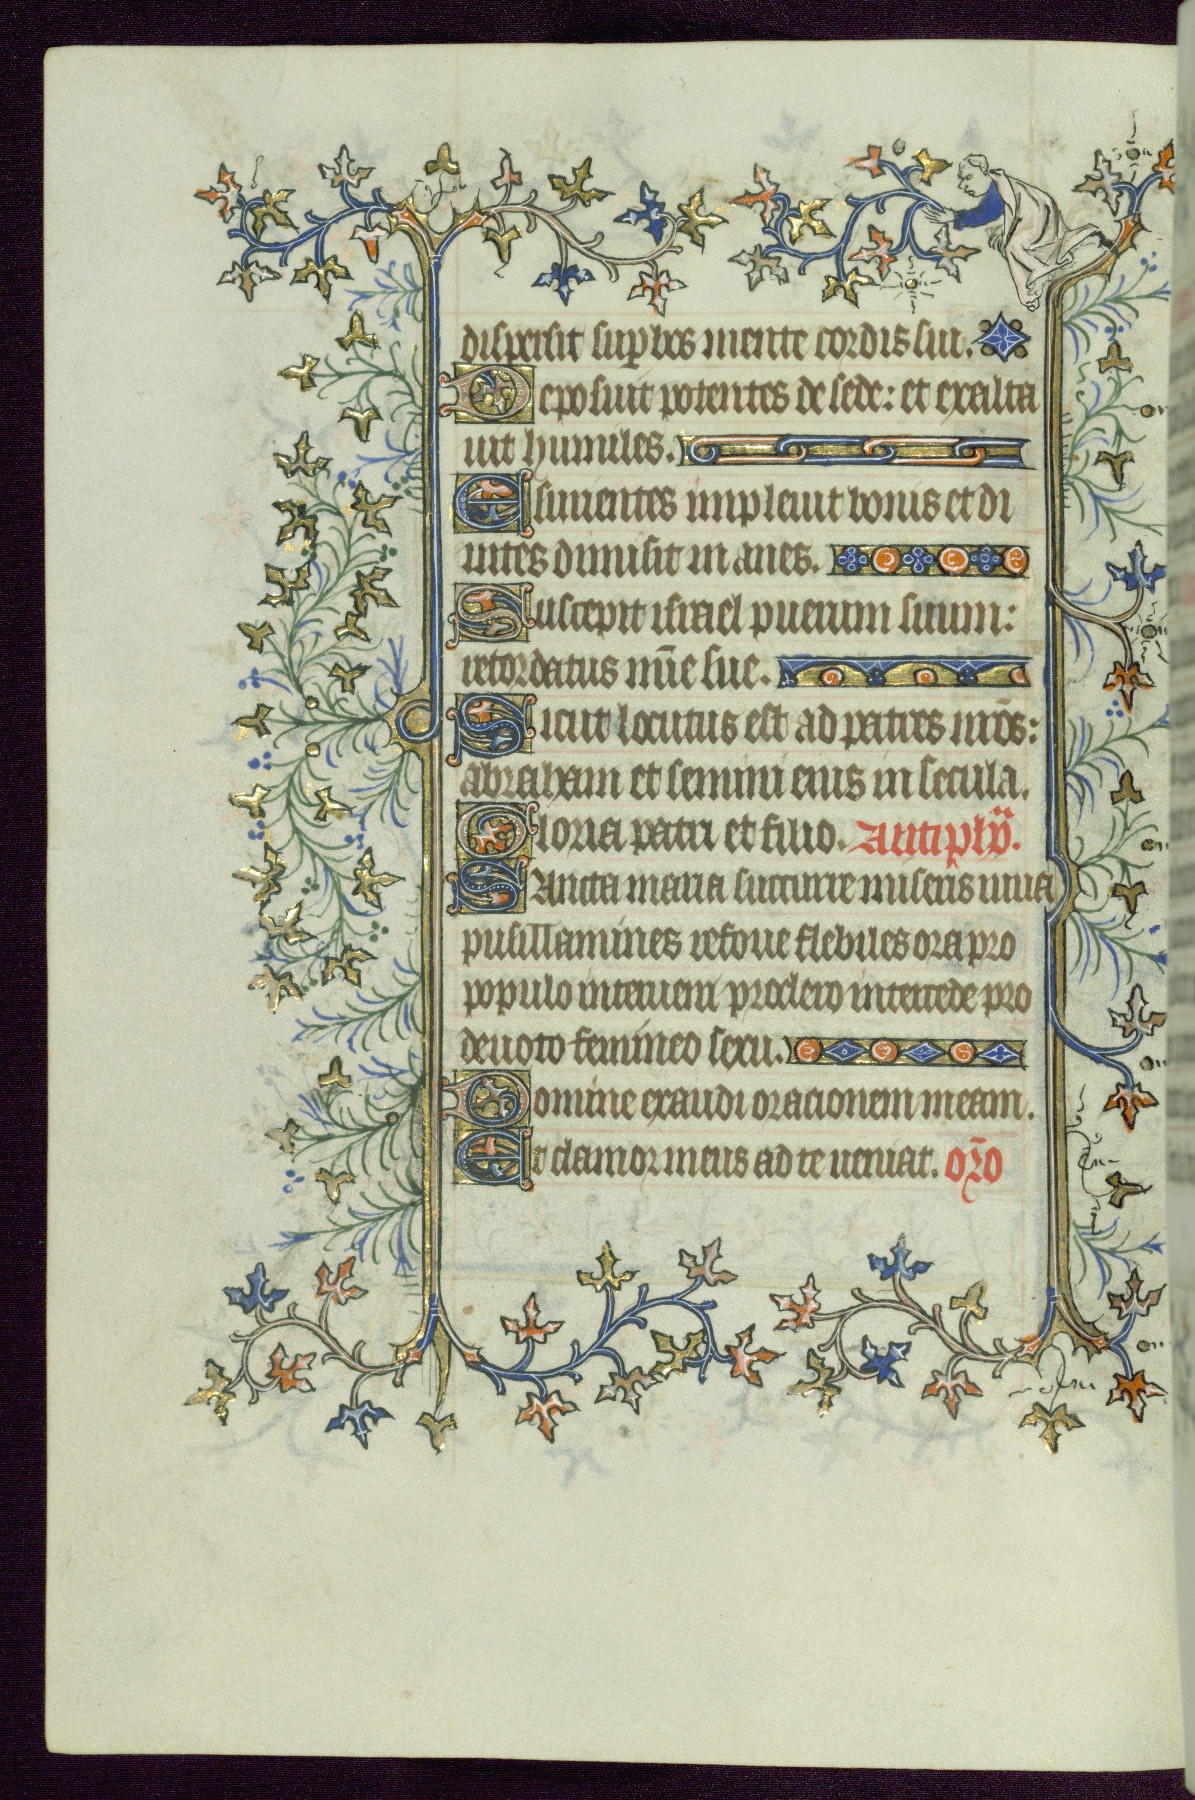 dispersit sup̱bos mente cordis sui.
Deposuit potentes de sede: et exalta
uit humiles.
Esurientes impleuit bonis et di
uites dimisit inanes.
Suscepit israel puerum suum:
recordatus mīe sue.
Sicut locutus est ad patres nr̄os:
abraham et semini eius in secula.
Gloria patri et filio. Antiph̄.
SAncta maria succurre miseris iuua
pusillamines refoue flebiles ora pro
populo interueni pro clero intercede pro
deuoto femineo sexu.
Domine exaudi oracionem meam.
Et clamor meus ad te ueniat. or̄o